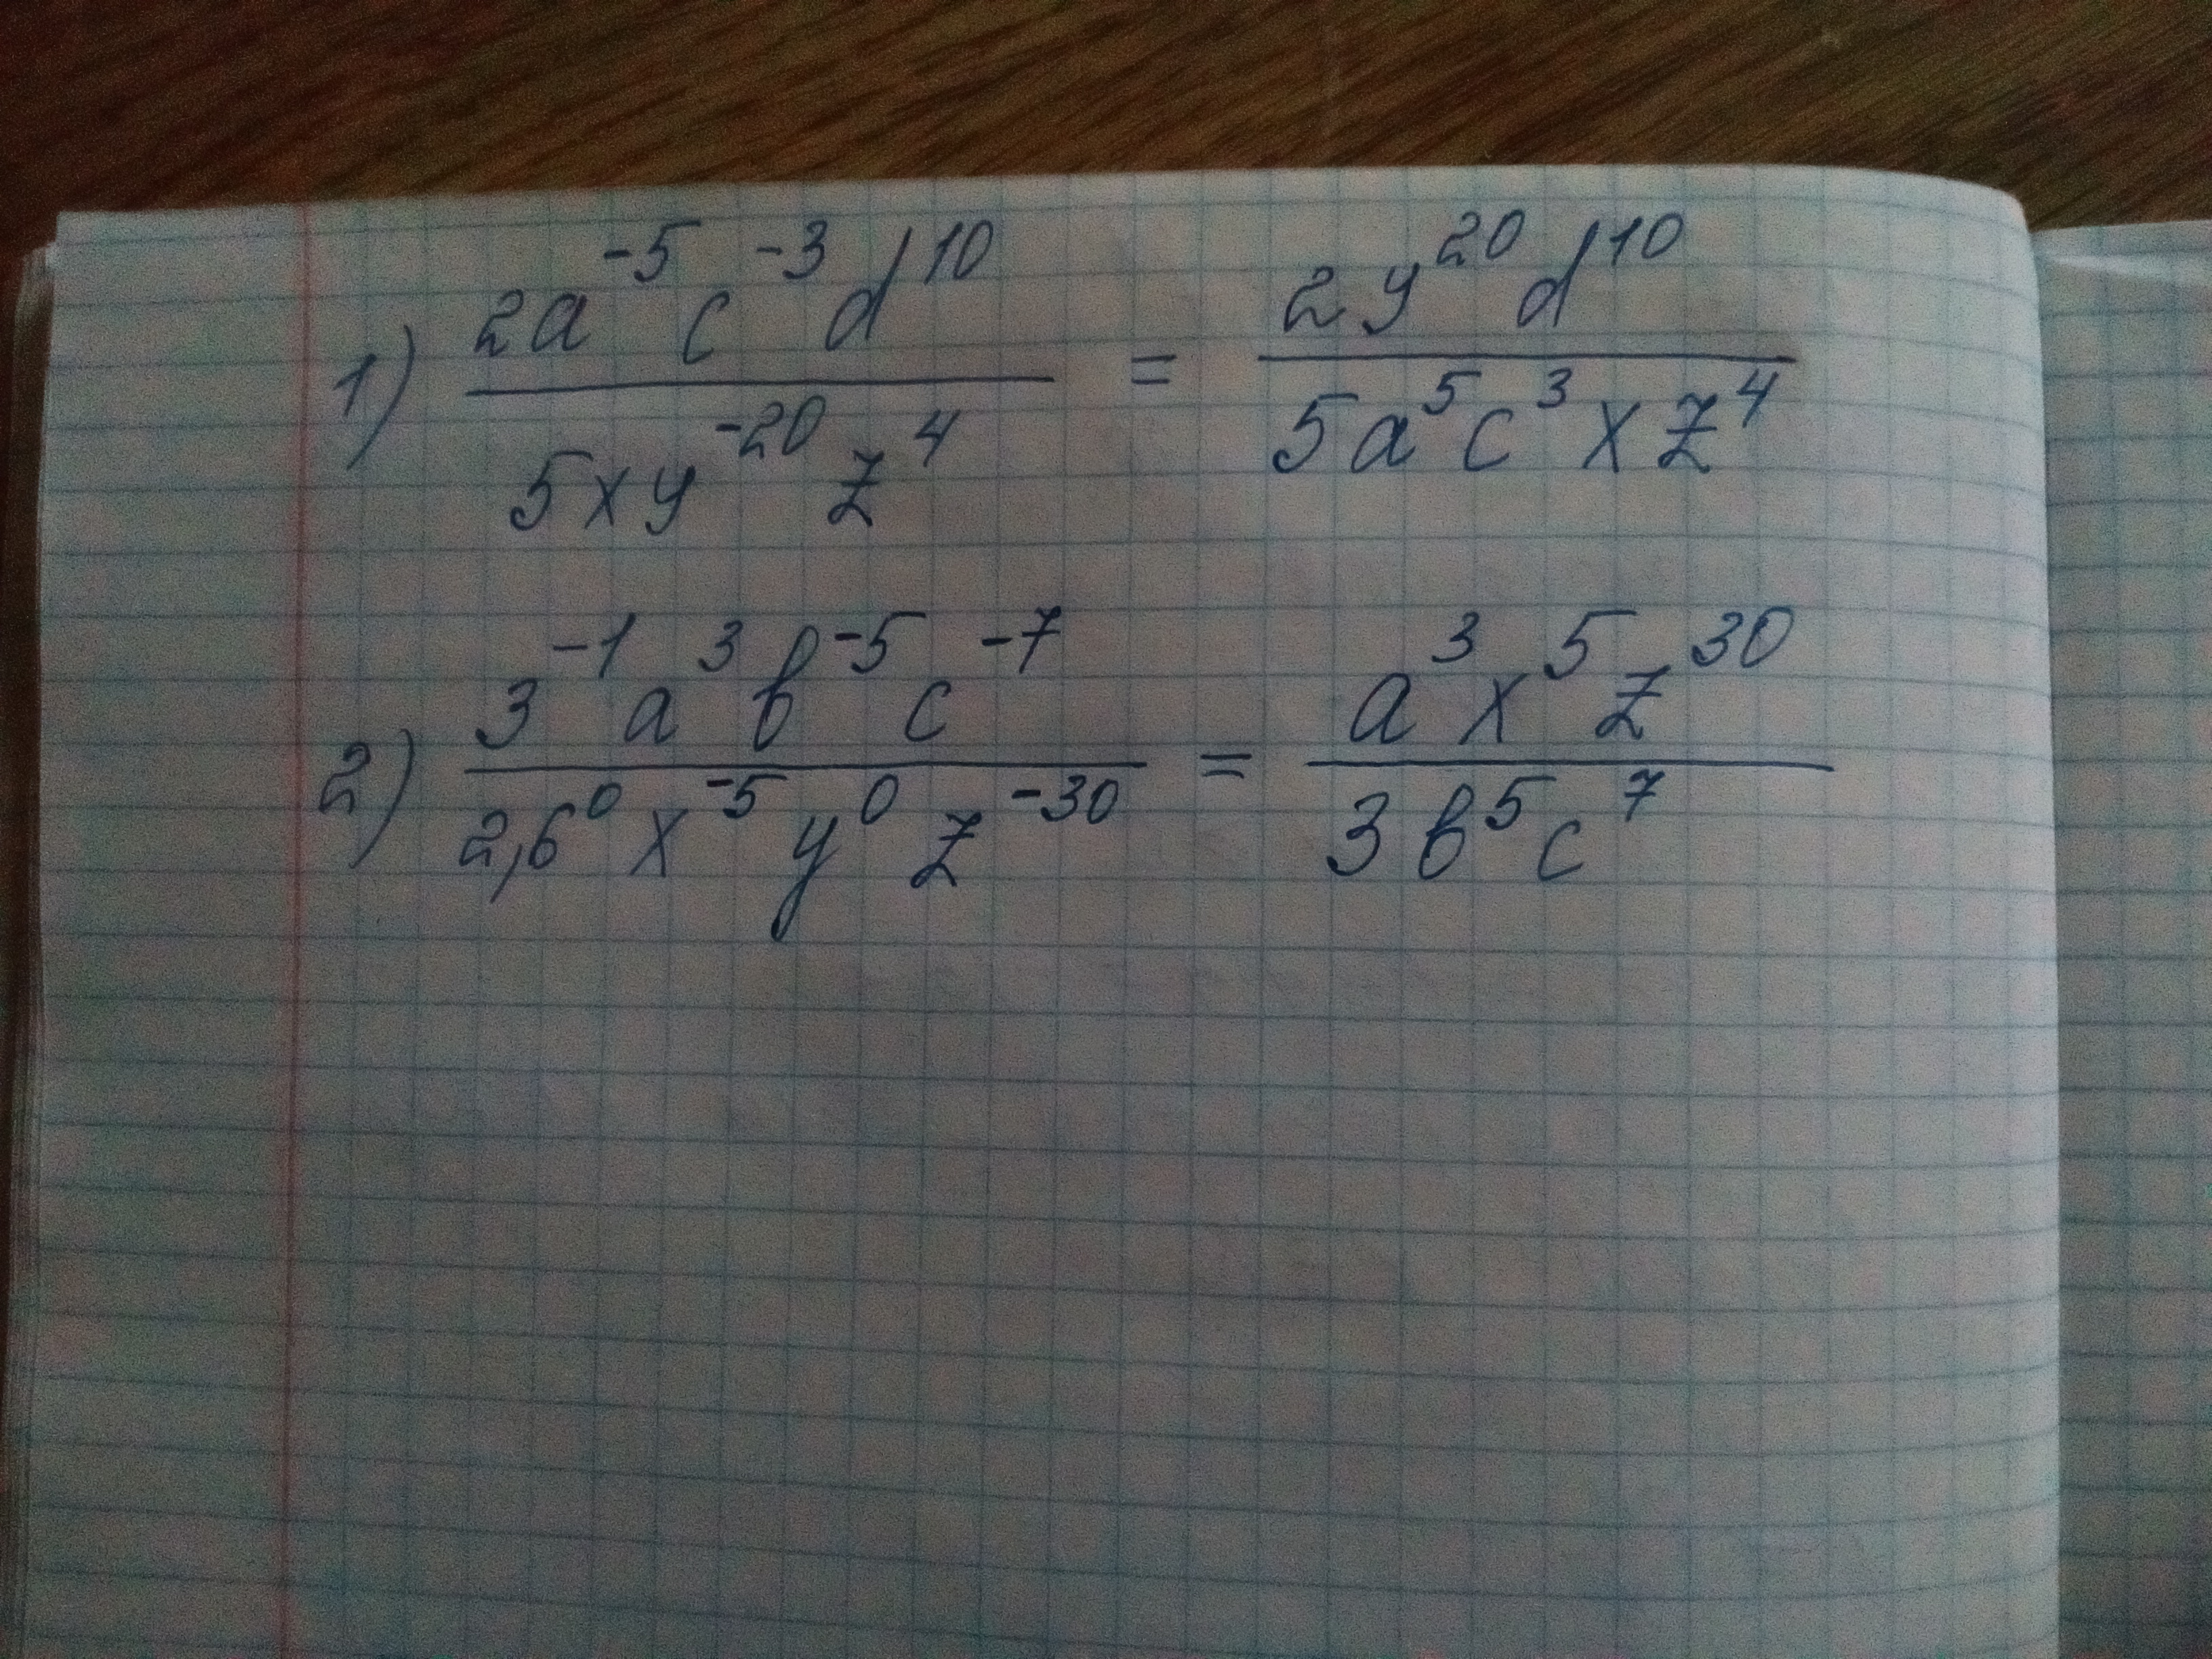 1) \frac{2a^{-5}c^{-3}d^{10}}{5xy^{-20}z^{4}} = \frac{2y^{20}d^{10}}{5a^{5}c^{3}xz^{4}}
2) \frac{3^{-1}a^{3}b^{-5}c^{-7}}{2,6^{0}x^{-5}y^{0}z^{-30}} = \frac{a^{3}x^{5}z^{30}}{3b^{5}c^{7}}